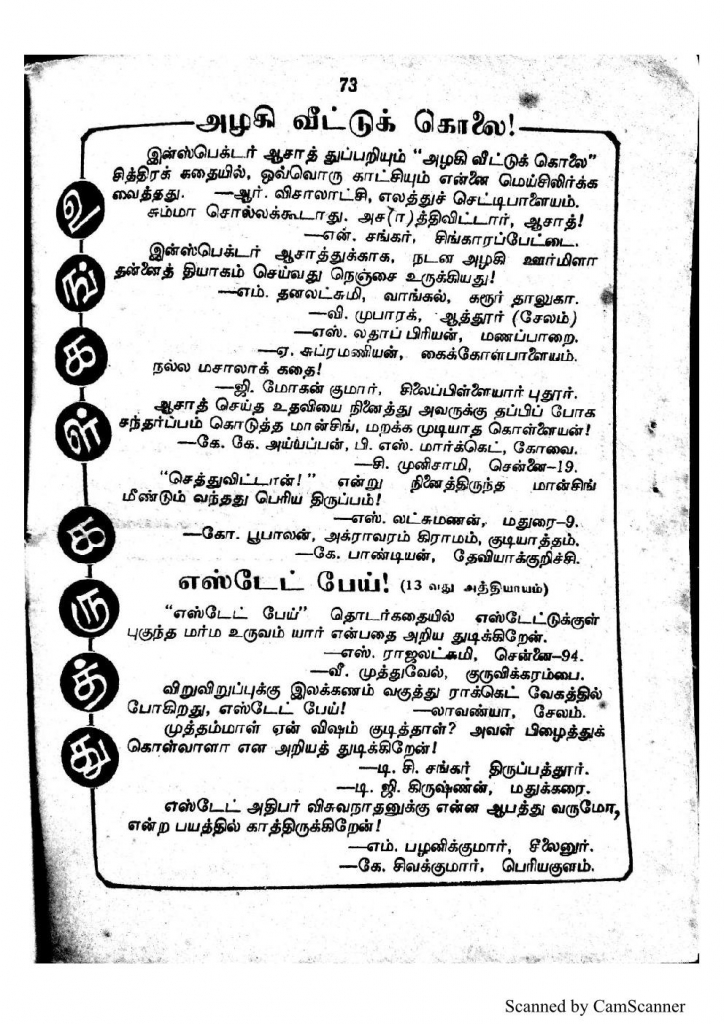 73
அழகி வீட்டுக் கொலை!
இன்ஸ்பெக்டர் ஆசாத் துப்பறியும் “அழகி வீட்டுக் கொலை”
சித்திரக் கதையில், ஒவ்வொரு காட்சியும் என்னை மெய்சிலிர்க்க
வைத்தது. —ஆர். விசாலாட்சி, எலத்துச் செட்டிபாளையம்.
சும்மா சொல்லக்கூடாது. அச(ா)த்திவிட்டார், ஆசாத்!
—என். சங்கர், சிங்காரப்பேட்டை.
இன்ஸ்பெக்டர் ஆசாத்துக்காக, நடன அழகி ஊர்மிளா
தன்னைத் தியாகம் செய்வது நெஞ்சை உருக்கியது!
—எம். தனலட்சுமி, வாங்கல், கரூர் தாலுகா.
—வி. முபாரக், ஆத்தூர் (சேலம்)
—எஸ். லதாப் பிரியன், மணப்பாறை.
—ஏ. சுப்ரமணியன், கைக்கோள்பாளையம்.
நல்ல மசாலாக் கதை!
—ஜி. மோகன் குமார், சிலைப்பிள்ளையார் புதூர்.
ஆசாத் செய்த உதவியை நினைத்து அவருக்கு தப்பிப் போக
சந்தர்ப்பம் கொடுத்த மான்சிங், மறக்க முடியாத கொள்ளையன்!
—கே. கே. அய்யப்பன், பி. எஸ். மார்க்கெட், கோவை.
—சி. முனிசாமி, சென்னை–19.
“செத்துவிட்டான்!” என்று நினைத்திருந்த மான்சிங்
மீண்டும் வந்தது பெரிய திருப்பம்!
—எஸ். லட்சுமணன், மதுரை–9.
—கோ. பூபாலன், அக்ராவரம் கிராமம், குடியாத்தம்.
—கே. பாண்டியன், தேவியாக்குறிச்சி.
எஸ்டேட் பேய்! (13 வது அத்தியாயம்)
“எஸ்டேட் பேய்” தொடர்கதையில் எஸ்டேட்டுக்குள்
புகுந்த மர்ம உருவம் யார் என்பதை அறிய துடிக்கிறேன்.
—எஸ். ராஜலட்சுமி, சென்னை–94.
—வீ. முத்துவேல், குருவிக்கரம்பை.
விறுவிறுப்புக்கு இலக்கணம் வகுத்து ராக்கெட் வேகத்தில்
போகிறது, எஸ்டேட் பேய்! —லாவண்யா, சேலம்.
முத்தம்மாள் ஏன் விஷம் குடித்தாள்? அவள் பிழைத்துக்
கொள்வாளா என அறியத் துடிக்கிறேன்!
—டி. சி. சங்கர் திருப்பத்தூர்.
—டி. ஜி. கிருஷ்ணன், மதுக்கரை.
எஸ்டேட் அதிபர் விசுவநாதனுக்கு என்ன ஆபத்து வருமோ,
என்ற பயத்தில் காத்திருக்கிறேன்!
—எம். பழனிக்குமார், சீலைனூர்.
—கே. சிவக்குமார், பெரியகுளம்.
உங்கள் கருத்து
Scanned by CamScanner